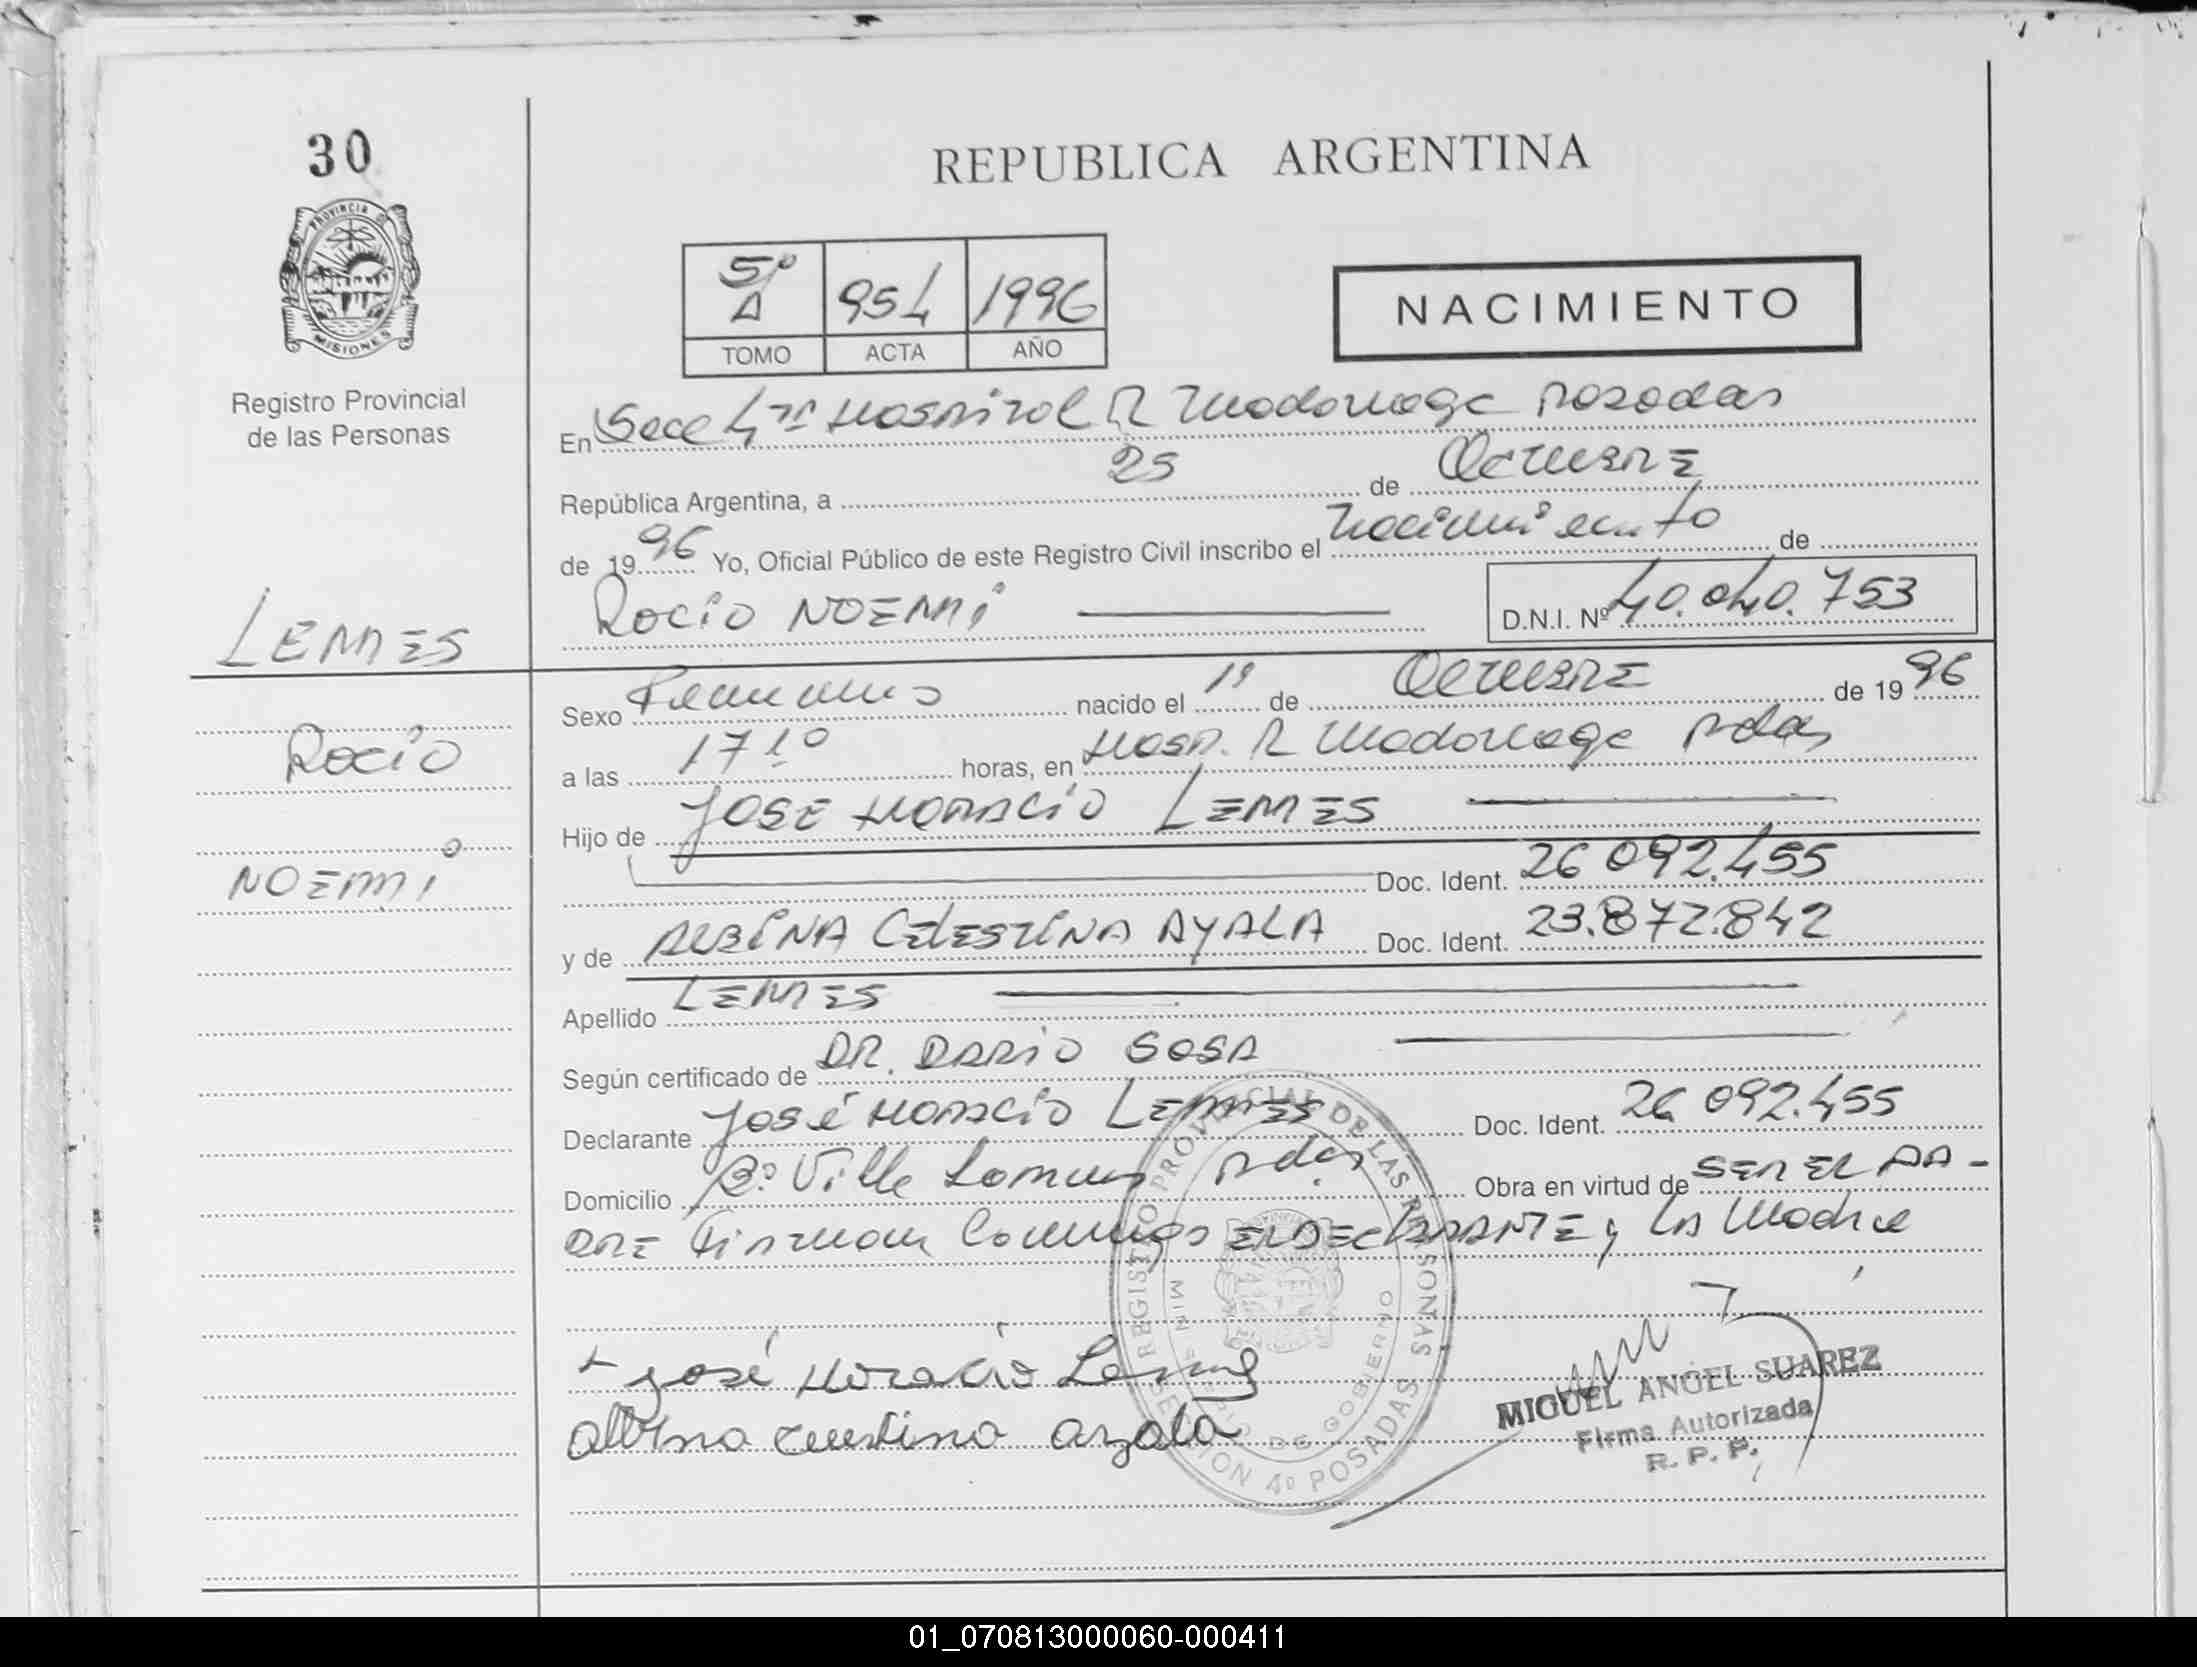 30
REPUBLICA ARGENTINA
PROVINCIA D
MISIONES
5º
A 954 1996
TOMO ACTA AÑO
NACIMIENTO
Registro Provincial
de las Personas
En Secc 4ta Hospital R Madariaga Posadas
República Argentina, a 25 de Octubre
de 1996 Yo, Oficial Público de este Registro Civil inscribo el nacimiento de
ROCIO NOEMI D.N.I. Nº 40.040.753
LEMES
ROCIO
NOEMI
Sexo Femenino nacido el 1º de Octubre de 1996
a las 17 10 horas, en Hosp. R Madariaga Pdas
Hijo de JOSE HORACIO LEMES
Doc. Ident. 26 092.455
y de ALBINA CELESTINA AYALA Doc. Ident. 23.872.842
Apellido LEMES
Según certificado de DR. DARIO SOSA
Declarante JOSÉ HORACIO LEMES Doc. Ident. 26 092.455
Domicilio Bº Ville Pdas Obra en virtud de SER EL PA-
DRE Firman Conmigo EL DECLARANTE y LA Madre
José Horacio Lemes
Albina Celestina Ayala
REGISTRO PROVINCIAL DE LAS PERSONAS
MINISTERIO DE GOBIERNO
SECCION 4º POSADAS
MIGUEL ANGEL SUAREZ
Firma Autorizada
R. P. P.
01_070813000060-000411